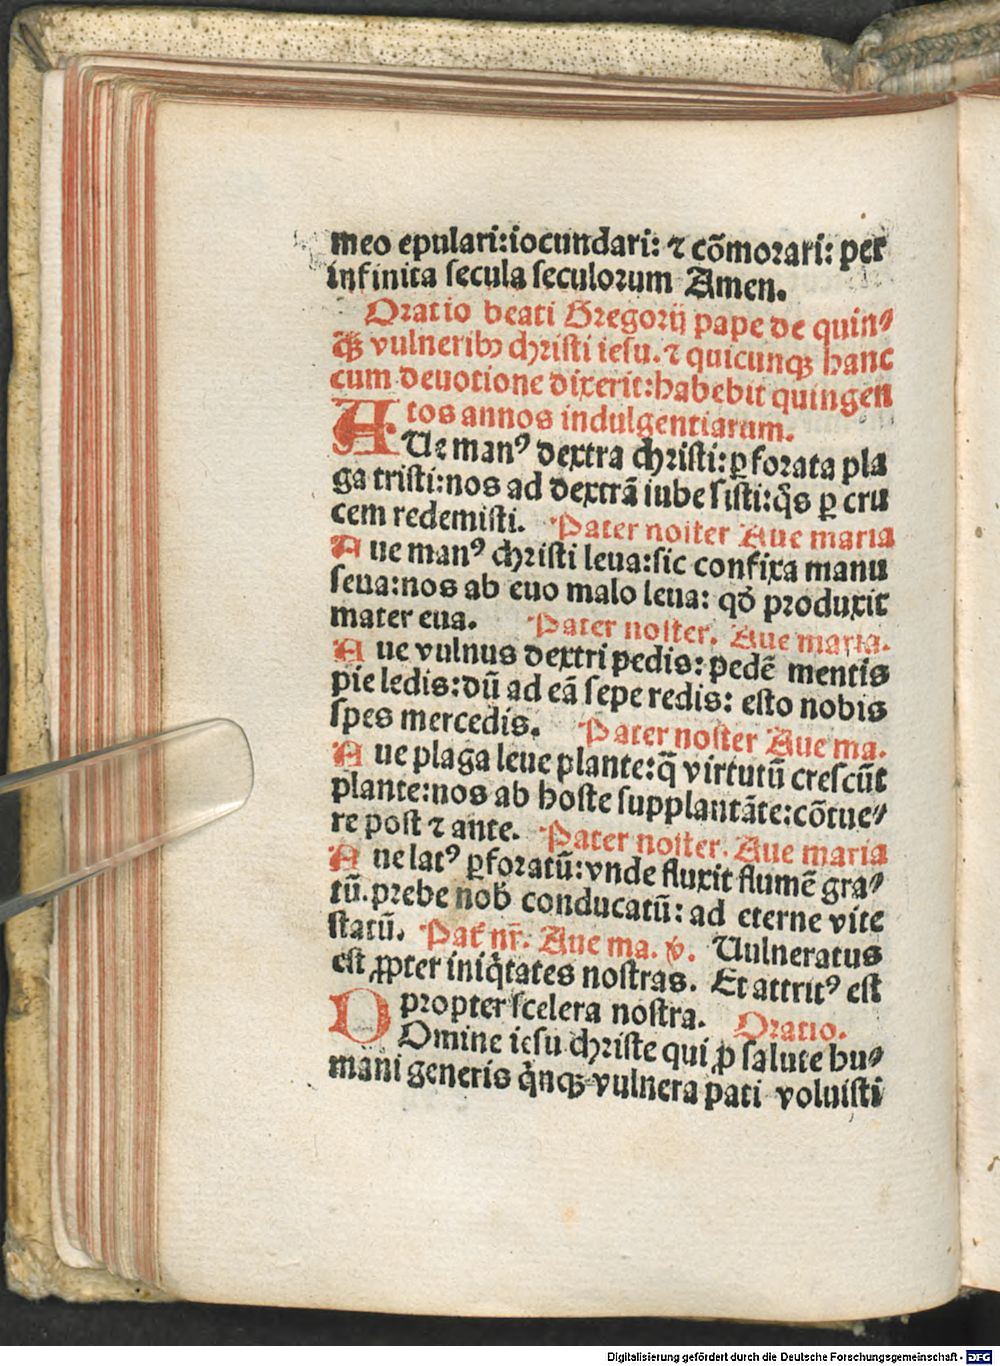 meo epulari:iocundari: ⁊ cõmorari: per
infinita secula seculorum Amen.
Oratio beati Gregorij pape de quin⸗
qꝫ vulneribꝰ christi iesu. ⁊ quicunqꝫ hanc
cum deuotione dixerit:habebit quingen
tos annos indulgentiarum.
AUe manꝰ dextra christi:ꝑforata pla
ga tristi:nos ad dextrã iube sisti:q̃s ꝑ cru
cem redemisti. Pater noster Aue maria
Aue manꝰ christi leua:sic confixa manu
seua:nos ab euo malo leua: qđ produxit
mater eua. Pater noster. Aue maria.
Aue vulnus dextri pedis: pedẽ mentis
pie ledis:dũ ad eã sepe redis: esto nobis
spes mercedis. Pater noster Aue ma.
Aue plaga leue plante:q̃ virtutũ crescũt
plante:nos ab hoste supplantãte:cõtue⸗
re post ⁊ ante. Pater noster. Aue maria
Aue latꝰ ꝑforatũ:vnde fluxit flumẽ gra⸗
tũ.prebe nob̃ conducatũ: ad eterne vite
statũ. Pat̃ nr̃. Aue ma. ℣. Uulneratus
est ꝓpter iniq̃tates nostras. Et attritꝰ est
propter scelera nostra. Oratio.
DOmine iesu christe qui ꝓ salute hu⸗
mani generis q̃nqꝫ vulnera pati voluisti
Digitalisierung gefördert durch die Deutsche Forschungsgemeinschaft - DFG